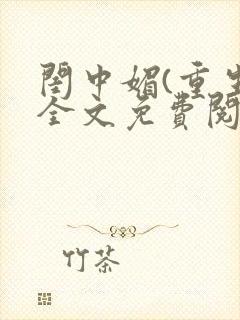 閨中媚(重生
全文免費閱
竹茶